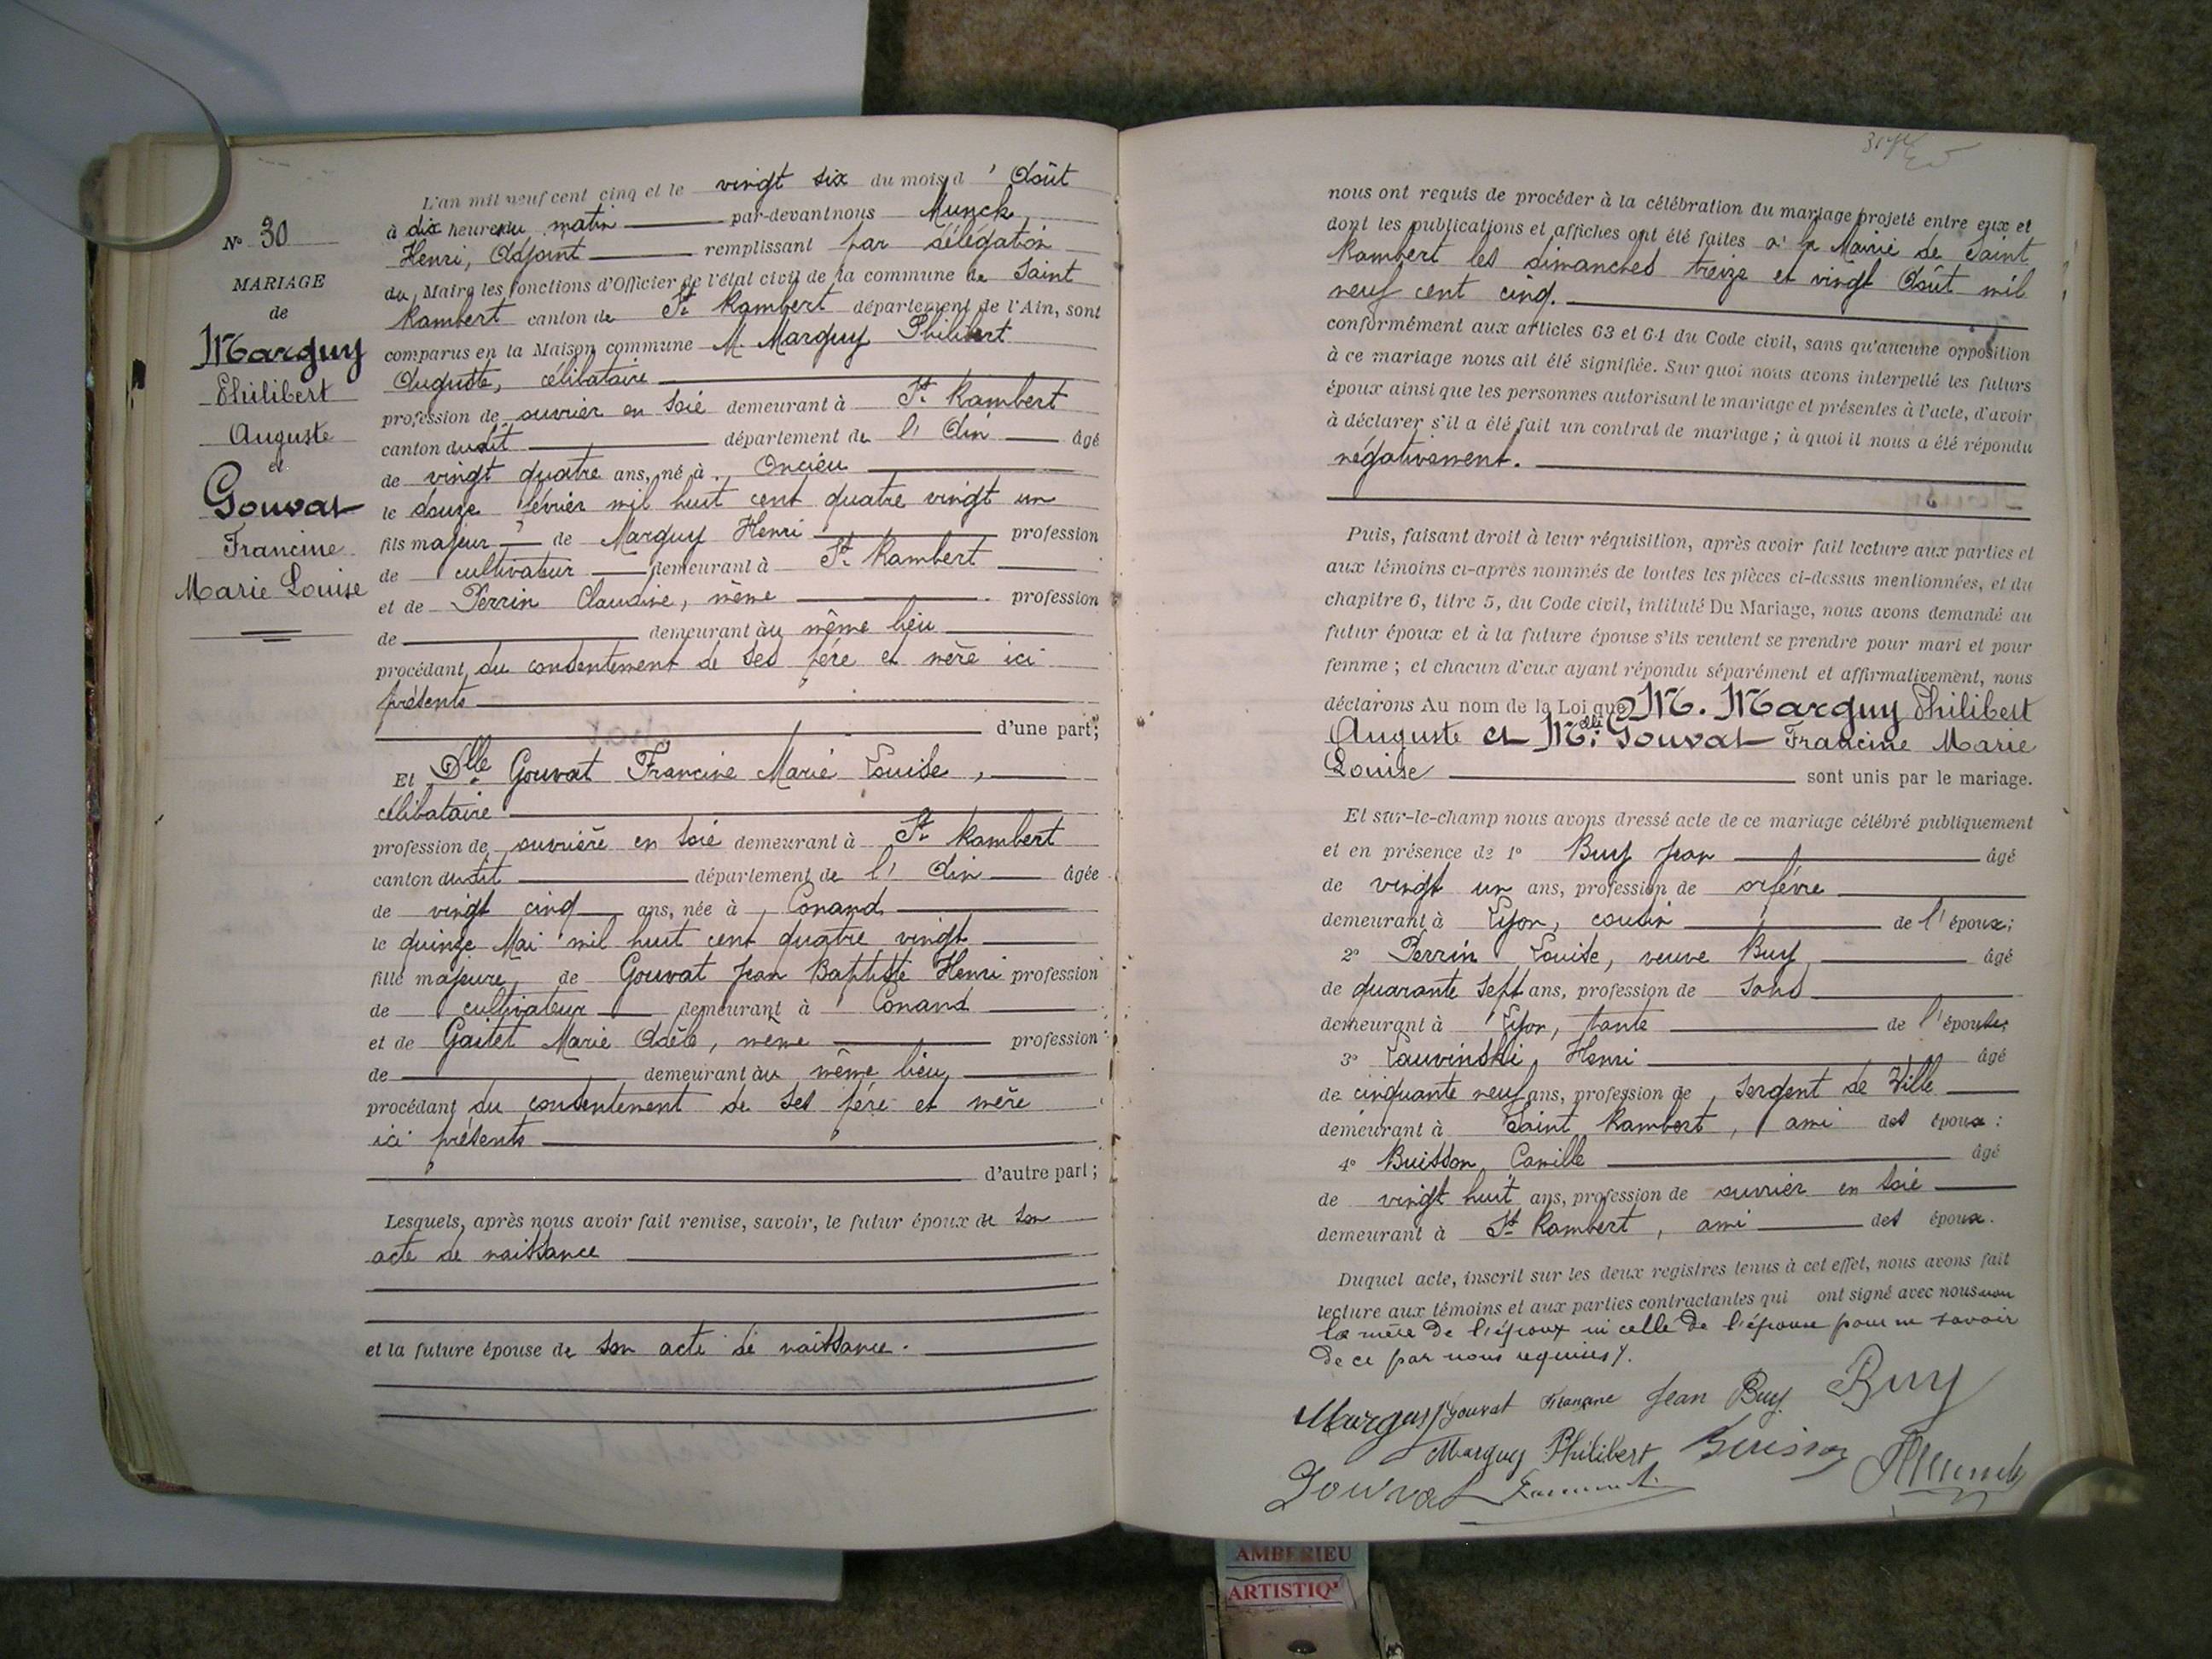 N° 30
MARIAGE
de
Marguy
Philibert
Auguste
et
Gouvat
Francine
Marie Louise
L'an mil neuf cent cinq et le vingt six du mois d' Août
à dix heure du matin par-devant nous Munck,
Henri, Adjoint remplissant par délégation
du Maire les fonctions d'Officier de l'état civil de la commune de Saint
Rambert canton de St Rambert département de l'Ain, sont
comparus en la Maison commune M. Marguy Philibert
Auguste, célibataire
profession de ouvrier en soie demeurant à St Rambert
canton dudit département de l'Ain âgé
de vingt quatre ans, né à Oncieu
le douze février mil huit cent quatre vingt un
fils majeur de Marguy Henri profession
de cultivateur demeurant à St Rambert
et de Perrin Claudine, même profession
de demeurant au même lieu
procédant du consentement de ses père et mère ici
présents
d'une part;
Et Dlle Gouvat Francine Marie Louise,
célibataire
profession de ouvrière en soie demeurant à St Rambert
canton dudit département de l'Ain âgée
de vingt cinq ans, née à Conand
le quinze Mai mil huit cent quatre vingt
fille majeure de Gouvat Jean Baptiste Henri profession
de cultivateur demeurant à Conand
et de Gaitet Marie Adèle, même profession
de demeurant au même lieu
procédant du consentement de ses père et mère
ici présents
d'autre part;
Lesquels, après nous avoir fait remise, savoir, le futur époux de son
acte de naissance
et la future épouse de son acte de naissance.
nous ont requis de procéder à la célébration du mariage projeté entre eux et
dont les publications et affiches ont été faites à la Mairie de Saint
Rambert les dimanches treize et vingt Août mil
neuf cent cinq.
conformément aux articles 63 et 64 du Code civil, sans qu'aucune opposition
à ce mariage nous ait été signifiée. Sur quoi nous avons interpellé les futurs
époux ainsi que les personnes autorisant le mariage et présentes à l'acte, d'avoir
à déclarer s'il a été fait un contrat de mariage; à quoi il nous a été répondu
négativement.
Puis, faisant droit à leur réquisition, après avoir fait lecture aux parties et
aux témoins ci-après nommés de toutes les pièces ci-dessus mentionnées, et du
chapitre 6, titre 5, du Code civil, intitulé Du Mariage, nous avons demandé au
futur époux et à la future épouse s'ils veulent se prendre pour mari et pour
femme; et chacun d'eux ayant répondu séparément et affirmativement, nous
déclarons Au nom de la Loi que M. Marguy Philibert
Auguste et Mdlle Gouvat Francine Marie
Louise sont unis par le mariage.
Et sur-le-champ nous avons dressé acte de ce mariage célébré publiquement
et en présence de 1° Buy Jean âgé
de vingt un ans, profession de orfèvre
demeurant à Lyon, cousin de l'époux;
2° Perrin Louise, veuve Buy âgé
de quarante sept ans, profession de sans
demeurant à Lyon, tante de l'époux;
3° Lauvinski Henri âgé
de cinquante neuf ans, profession de Sergent de Ville
demeurant à Saint Rambert, ami des époux:
4° Buisson Camille âgé
de vingt huit ans, profession de ouvrier en soie
demeurant à St Rambert, ami des époux.
Duquel acte, inscrit sur les deux registres tenus à cet effet, nous avons fait
lecture aux témoins et aux parties contractantes qui ont signé avec nous non
la mère de l'époux ni celle de l'épouse pour ne savoir
de ce par nous requises.
Marguy Gouvat Francine Jean Buy Buy
Marguy Philibert Buisson HMunck
Gouvat
AMBERIEU
ARTISTIQ